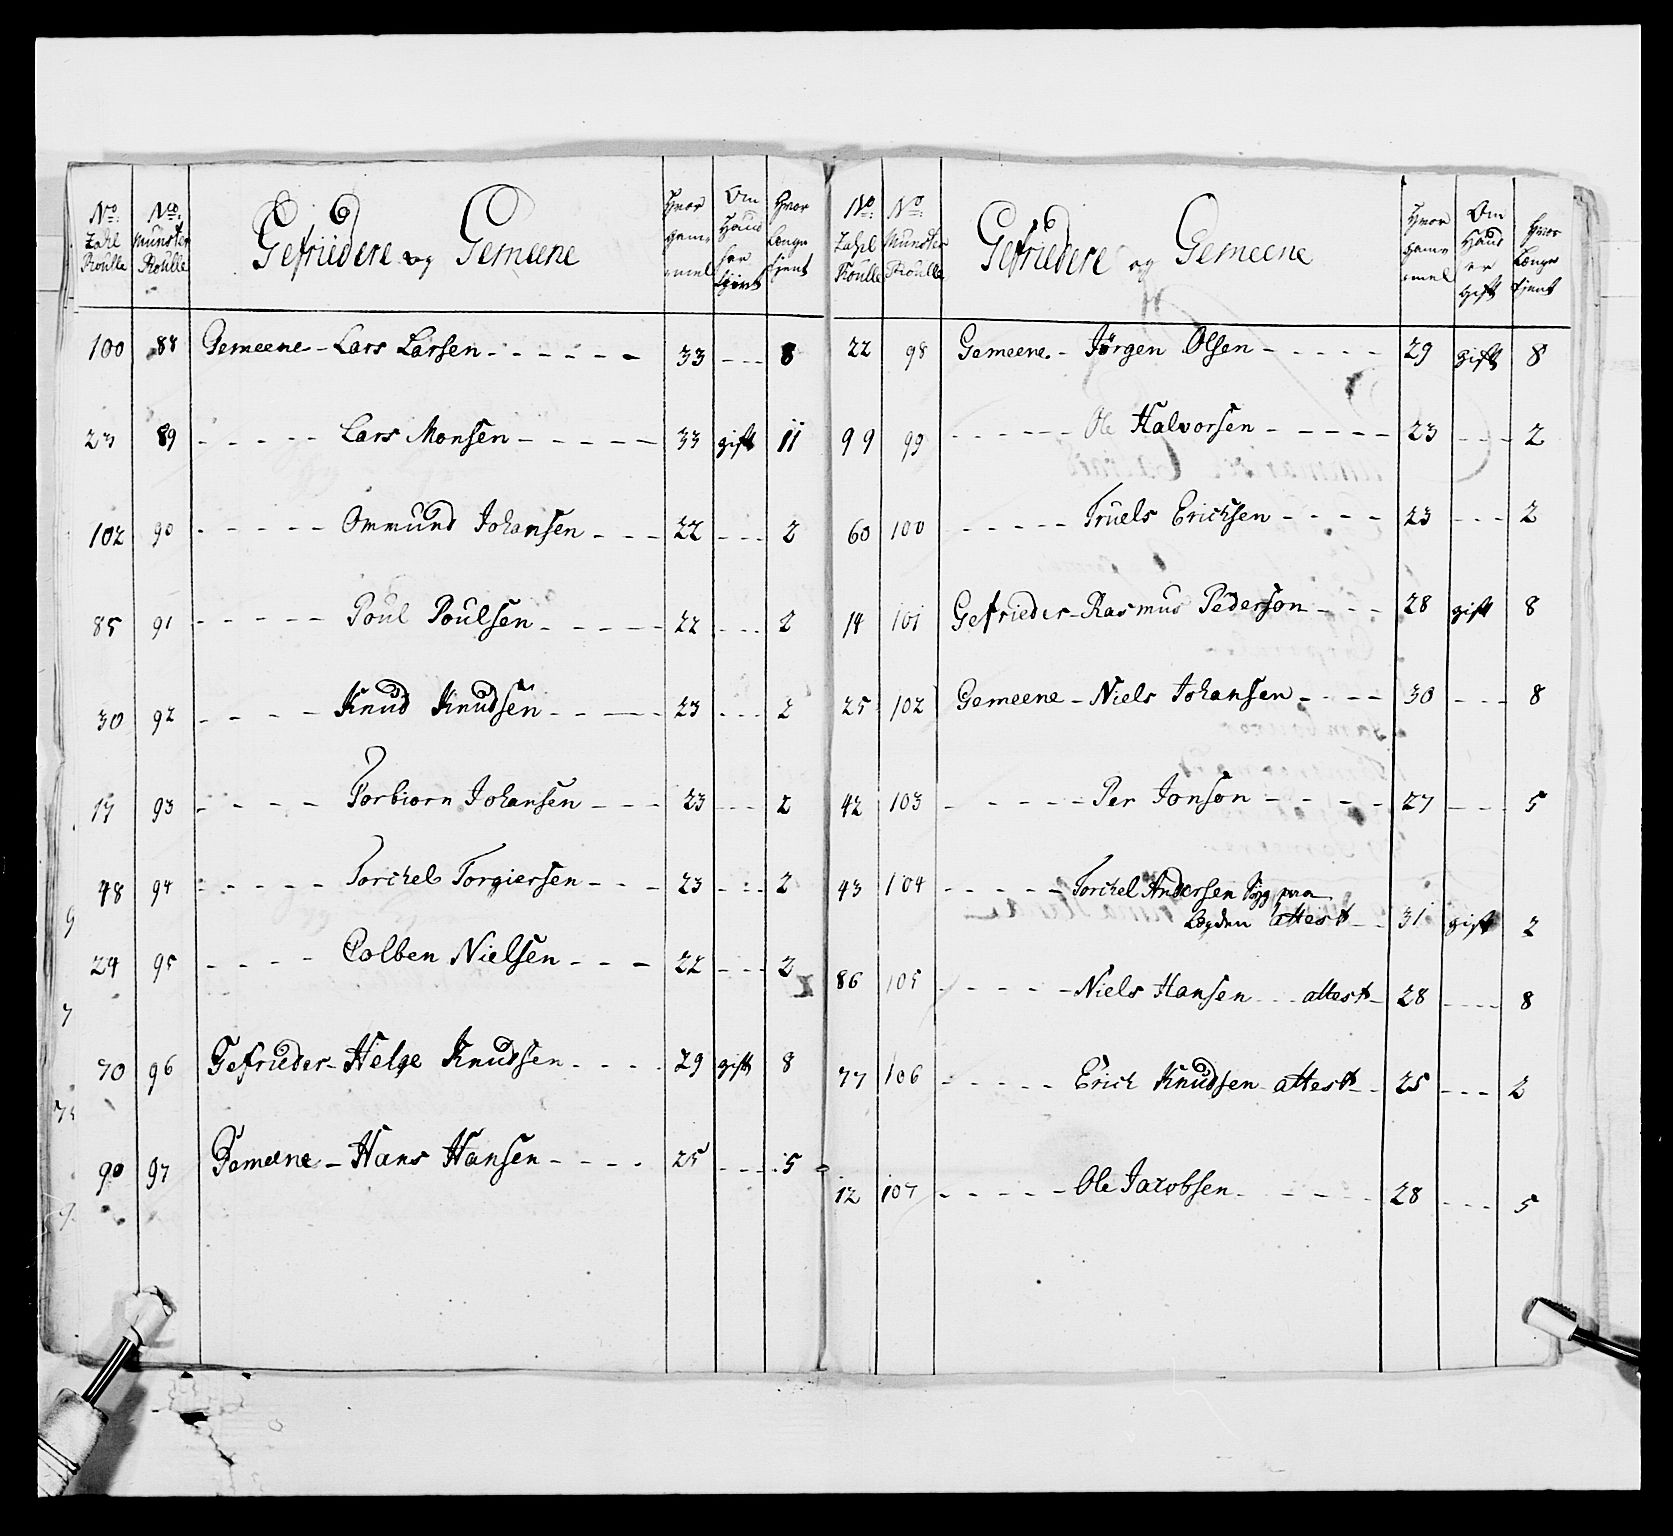 No: Zahl Roulle | No: Munster Roulle | Gefriedere og Gemeene | Hvor gam= mel | Om Haud | Hvor Længe tjent
100 88 Gemeene - Lars Larsen - - - - - - 33 - - - 8
23 89 - - - - - Lars Monsen - - - - - 33 gift 11
102 90 - - - - - Ommund Johansen - - - 22 - - - 2
85 91 - - - - - Poul Poulsen - - - - - 22 - - - 2
30 92 - - - - Knud Knudsen - - - - 23 - - - 2
17 93 - - - - Torbiorn Johansen - - - 23 - - - 2
48 94 - - - - - Torchel Torgiersen - - - 23 - - - 2
24 95 - - - - Colben Nielsen - - - 22 - - - 2
70 96 Gefrieder - Helge Knudsen - - - - 29 gift 8
90 97 Gemeene - Hans Hansen - - - - 25 - - - 5
No: Zahl Roulle | No: Munster Roulle | Gefriedere og Gemeene | Hvor gam= mel | Om Haud er gift | Hvor Længe tjent
22 98 Gemeene - Jørgen Olsen - - - - - 29 gift 8
99 99 - - - - - - Ole Halvorsen - - - - - 23 - - - 2
60 100 - - - - - Truels Erichsen - - - - 23 - - - 2
14 101 Gefrieder - Rasmus Pederson - - - 28 gift 8
25 102 Gemeene - Niels Johansen - - - - 30 - - - 8
42 103 - - - - - Per Jonson - - - - - 27 - - - 5
43 104 - - - - - Torchel Andersen
Lægden attest - - 31 gift 2
86 105 - - - - - Niels Hansen - - attest - 28 - - - 8
77 106 - - - - - Erich Knudsen - attest - - 25 - - - 2
12 107 - - - - - Ole Jacobsen - - - - 28 - - - 5